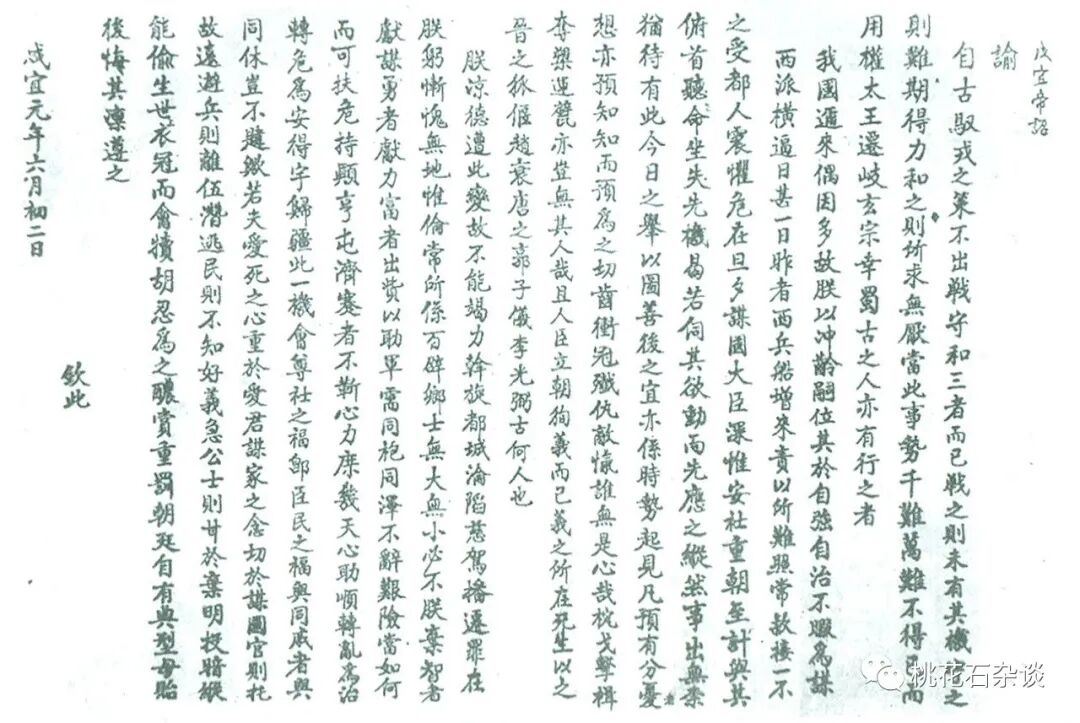 咸宜帝詔
諭
自古馭戎之策不出戦守和三者而已戦之則未有其機守之
則難期得力和之則所求無厭當此事勢千難萬難不得已而
用權太王遷岐玄宗幸蜀古之人亦有行之者
我國邇來偶因多故朕以冲齡嗣位其於自強自治不暇為謀
西派横逼日甚一日昨者西兵船增來責以所難照常款接一不
之受都人震懼危在旦夕謀國大臣深惟安社重朝至計與其
俯首聽命坐失先機曷若伺其欲動而先應之縱然事出無柰
猶待有此今日之舉以圖善後之宜亦係時勢起見凡預有分憂者
想亦預知知而預為之切齒衝冠殲仇敵愾誰無是心哉枕戈擊楫
奪槊運甓亦豈無其人哉且人臣立朝狥義而已義之所在死生以之
晉之狐偃趙衰唐之郭子儀李光弼古何人也
朕凉德遭此變故不能竭力斡旋都城淪䧟慈駕播遷罪在
朕躬慚愧無地惟倫常所係百辟鄉士無大無小必不朕棄智者
獻謀勇者獻力富者出貲以助軍需同袍同澤不辭艱險當如何
而可扶危持顛亨屯濟蹇者不靳心力庶幾天心助順轉亂為治
轉危為安得字歸疆此一機會尊社之福即臣民之福與同戚者與
同休豈不韙歟若夫愛死之心重於愛君謀家之念切於謀國官則托
故遠避兵則離伍潛逃民則不知好義急公士則甘於棄明投暗縱
能偷生世衣冠而會犢胡忍為之醲賞重罰朝廷自有典型毋貽
後悔其凛遵之
欽此
咸宜元年六月初二日
桃花石杂谈